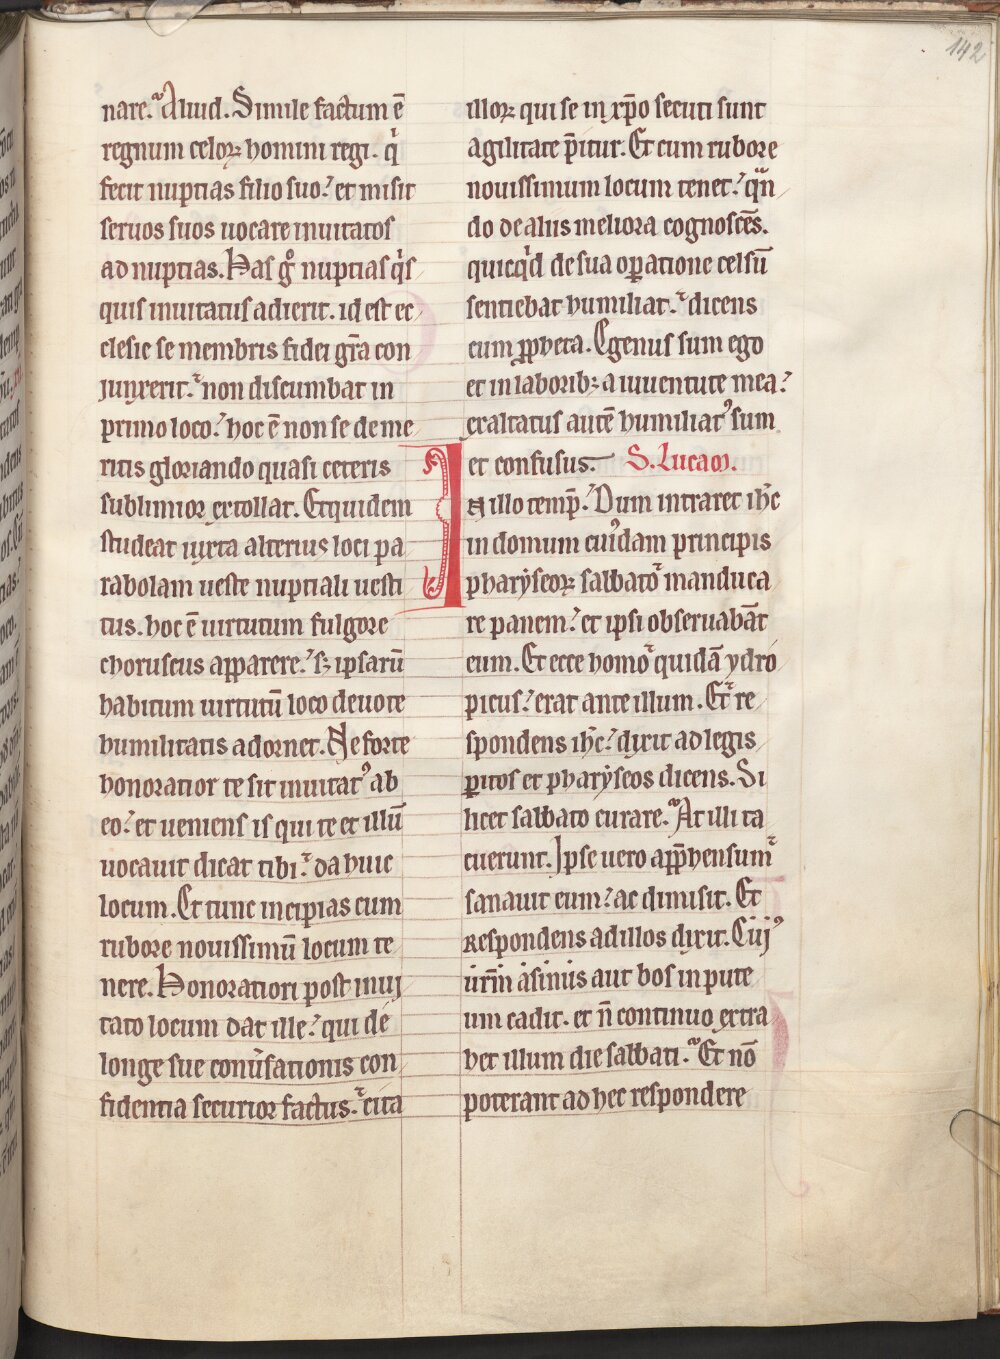 142
nare. Aliud. Simile factum ē
regnum celoꝝ homini regi. q̇
fecit nuptias filio suo. et misit
seruos suos uocare inuitatos
ad nuptias. Has gͦ nuptias q̇s
quis inuitatus adierit. id est ec
clesie se membris fidei gr̄a con
iunxerit. non discumbat in
primo loco. hoc ē non se de me
ritis gloriando quasi ceteris
sublimior extollat. Et quidem
studeat iuxta alterius loci pa
rabolam ueste nuptiali uesti
tus. hoc ē uirtutum fulgore
choruscus apparere. sꝫ ipsarū
habitum uirtutū loco deuote
humilitatis adornet. Ne forte
honoratior te sit inuitatꝰ ab
eo. et ueniens is qui te et illū
uocauit dicat tibi. da huic
locum. Et tunc incipias cum
rubore nouissimū locum te
nere. Honoratiori post inui
tato locum dat ille. qui de
longe sue conũsationis con
fidentia securior factus. cita
illoꝝ qui se in xp̄o secuti sunt
agilitate p̄itur. Et cum rubore
nouissimum locum tenet. qn̄
do de aliis meliora cognoscēs.
quicq̇d de sua oꝑatione celsū
sentiebat humiliat. dicens
cum ꝓpheta. Egenus sum ego
et in laboribꝫ a iuuentute mea.
exaltatus autē humiliatꝰ sum
et confusus. S. Lucam.
In illo temp̄. Dum intraret ih̄c
in domum cuiꝰdam principis
pharyseoꝝ sabbato manduca
re panem. et ipsi obseruabāt
eum. Et ecce homo quidā ydro
picus. erat ante illum. Et re
spondens ih̄c. dixit ad legis
ꝑitos et pharyseos dicens. Si
licet sabbato curare. At illi ta
cuerunt. Ipse uero app̄hensum
sanauit eum. ac dimisit. Et
respondens ad illos dixit. Cuiꝰ
ur̄m asinus aut bos in pute
um cadit. et n̄ continuo extra
het illum die sabbati. Et nō
poterant ad hec respondere